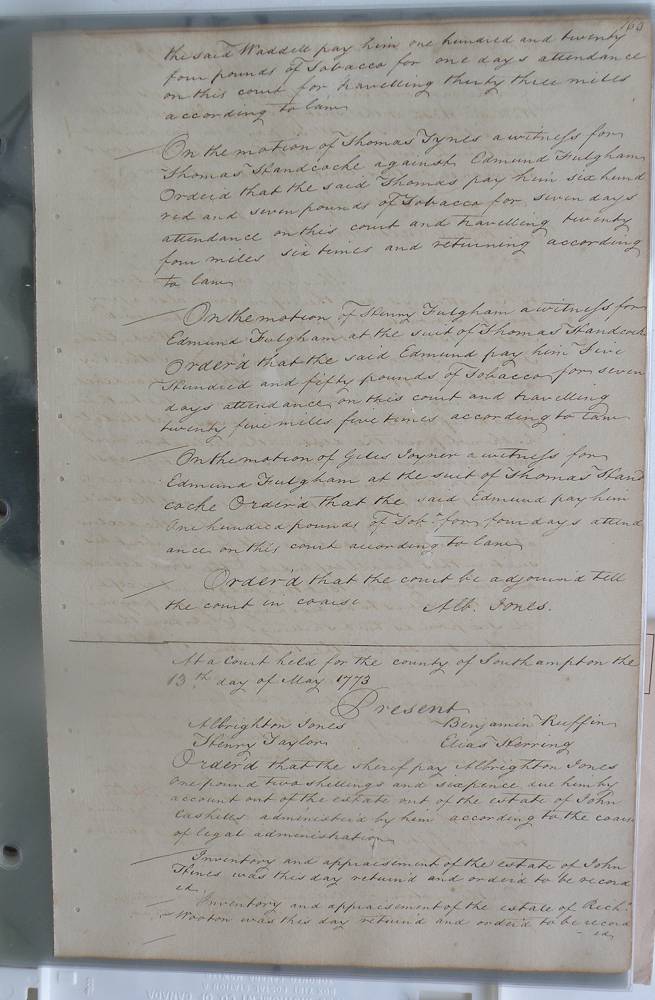 the said Waddell pay him one hundred and twenty
four pounds of Tobacco for one days attendance
on this court for travelling thirty three miles
according to law
On the motion of Thomas Tynes a witness for
Thomas Handcocke against Edmund Fulgham
Order'd that the said Thomas pay him six hund
red and seven pounds of Tobacco for seven days
attendance on this court and travelling twenty
four miles six times and returning according
to law
On the motion of Henry Fulgham a witness for
Edmund Fulgham at the suit of Thomas Handcock
Order'd that the said Edmund pay him Five
Hundred and fifty pounds of Tobacco for seven
days attendance on this court and travelling
twenty five miles five times according to law
On the motion of Giles Joyner a witness for
Edmund Fulgham at the suit of Thomas Hand
cocke Order'd that the said Edmund pay him
One hundred pounds of Tobo for four days attend
ance on this court according to law
Order'd that the court be adjourn'd till
the court in course
Alb. Jones.
At a Court held for the county of Southampton the
13th day of May 1773
Present
Albrighton Jones Benjamin Ruffin
Henry Taylor Elias Herring
Order'd that the sheref pay Albrighton Jones
One pound two shillings and sixpence due him by
account out of the estate out of the estate of John
administer'd by him according to the course
of legal administration
Inventory and appraisement of the estate of John
was this day return'd and order'd to be record
ed.
Inventory and appraisement of the estate of Richd
Wooton was this day return'd and order'd to be record
-ed